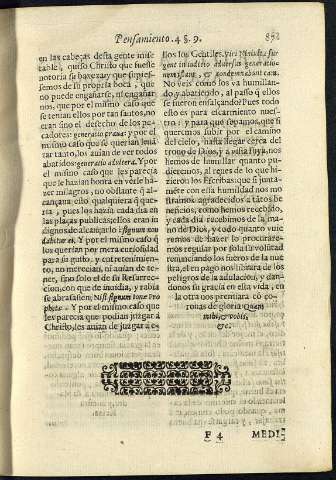 Pensamiento. 4 §. 9.
en las cabeças desta gente inse
table, quiso Christo que fuesse
notoria su baxeza, y que supies-
semos de su propria boca, que
no puede engañarse, ni engañar-
nos, que por el mismo caso que
se tenian ellos por tan justos, no
eran sino el desecho de los pe-
cados: generatio praua: y por el
mismo caso que se querian hon
rar tanto, los auian de ver todos
abatidos: generatio adultera. Y por
el mismo caso que les parecia
que le hazian honra en verle ha-
zer milagros, no obstante que al-
cançaua esto qualquiera que que-
ria, pues los hazia cada dia en
las plaças publicas: ellos eran in
dignos de alcançarlo: signum non
dabitur ei. Y por el mismo caso que
los querian por mera curiosidad
para su gusto, y entretenimien-
to, no merecian, ni auian de te-
ner, sino solo el de su Resurrec-
cion, con que de inuidia, y rabia
se abrasassen: Nisi signum Ionæ Pro
phetæ. Y por el mismo caso que
les parecia que podian juzgar a
Christo, les auian de juzgar a e-
llos los Gentiles, viri Niniuitæ sur
gent in iudicio aduersus generatio-
nem istam, & condemnabunt eam.
No veis como los va humillan-
do, y abatiendo, al passo que ellos
se fueron ensalçando? Pues todo
esso es para escarmiento nues-
tro: y para que sepamos, que si
queremos subir por el camino
del cielo, hasta llegar cerca del
trono de Dios, y a vista suya, nos
hemos de humillar quanto pu-
dieremos, al reues de lo que hi-
zieron los Escribas: que si junta-
mete con esta humildad nos mo
straimos agradecidos a tatos be
neficios, como hemos recebido,
y cada dia recebimos de la ma-
no de Dios, y todo quanto vuie
remos de hazer lo procurare-
mos regular por sola su voluntad
renunciando los fueros de la nue
stra, el en pago nos librara de los
peligros de la adulacion, y dan
donos su gracia en esta vida, en
la otra nos premiara co co-
ronas de gloria. Quam
mihi, & vobis,
&c.
F 4 MEDI-